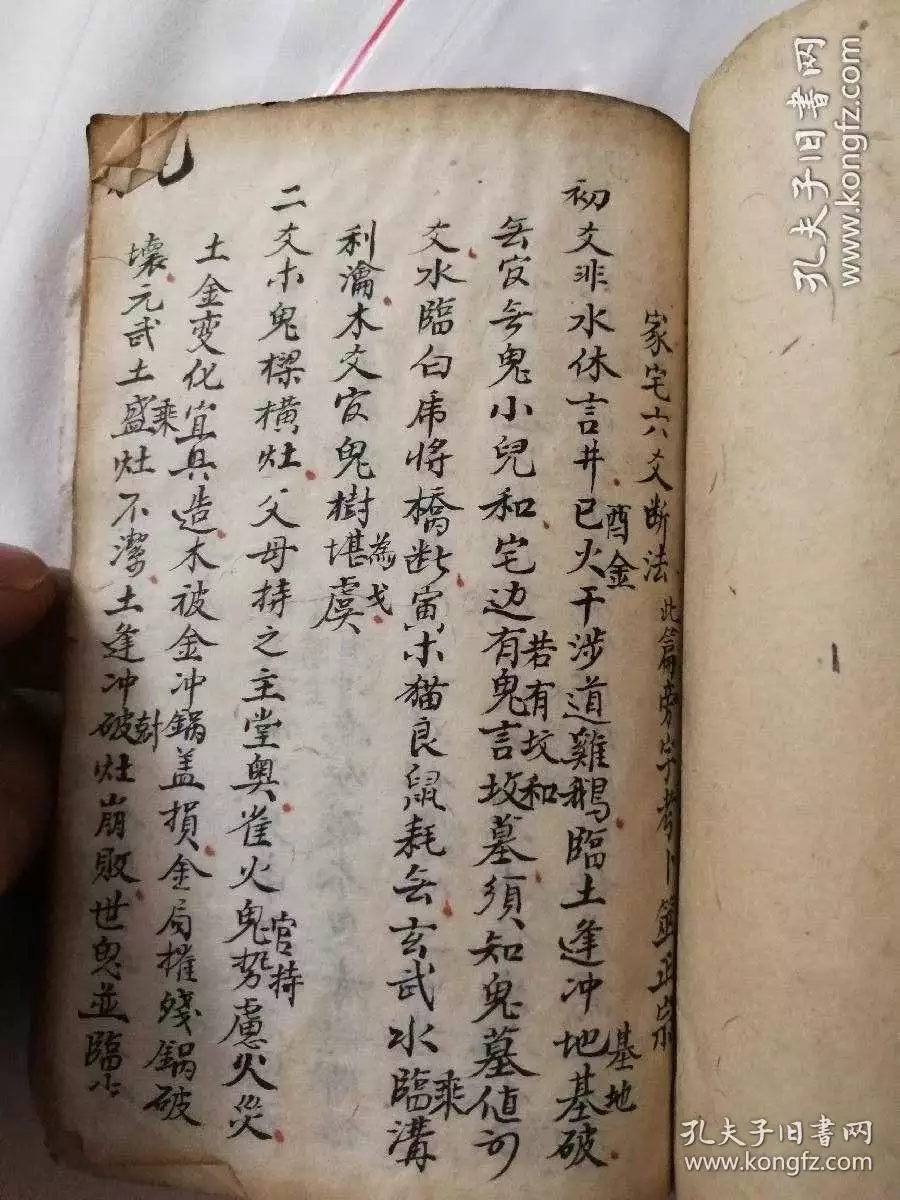 家宅六爻断法 此篇旁字考卜筮正宗
初爻非水休言井巳火干涉道雞鵝臨土逢冲地基破
酉金
基地
無官無鬼小兒和宅边有鬼言坟墓須知鬼墓值可
若有坟和
爻水臨白虎將橋断寅木猫良鼠耗無玄武水臨溝
乘
利瀹木爻官鬼樹堪虞
為戈
二爻木鬼樑横灶父母持之主堂奥雀火鬼势慮火災
官持
土金变化宜具造木被金冲鍋盖損金局摧殘鍋破
壞元武土盛灶不潔土逢冲破灶崩败世鬼並臨
乘
孔夫子旧书网
www.kongfz.com
孔夫子旧书网
www.kongfz.com